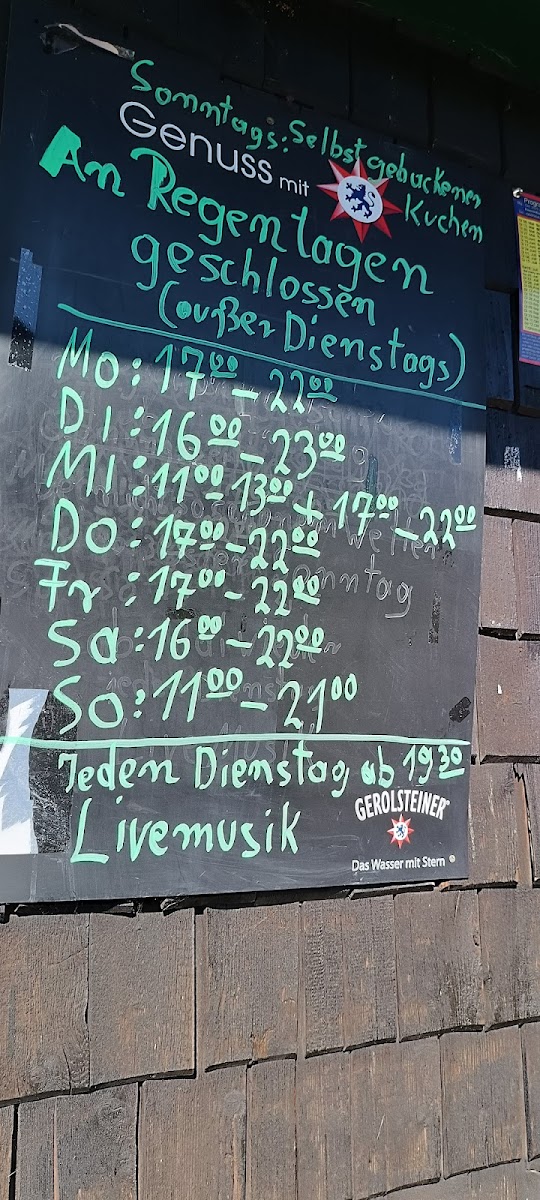 Sonntags: Selbstgebackenen
Kuchen
Genuss mit
An Regentagen
geschlossen
(außer Dienstags)
Mo: 17⁰⁰ – 22⁰⁰
Di: 16⁰⁰ – 23⁰⁰
Mi: 11⁰⁰ – 13⁰⁰ + 17⁰⁰ – 22⁰⁰
Do: 17⁰⁰ – 22⁰⁰
Fr: 17⁰⁰ – 22⁰⁰
Sa: 16⁰⁰ – 22⁰⁰
So: 11⁰⁰ – 21⁰⁰
Jeden Dienstag ab 19³⁰
Livemusik
GEROLSTEINER
Das Wasser mit Stern